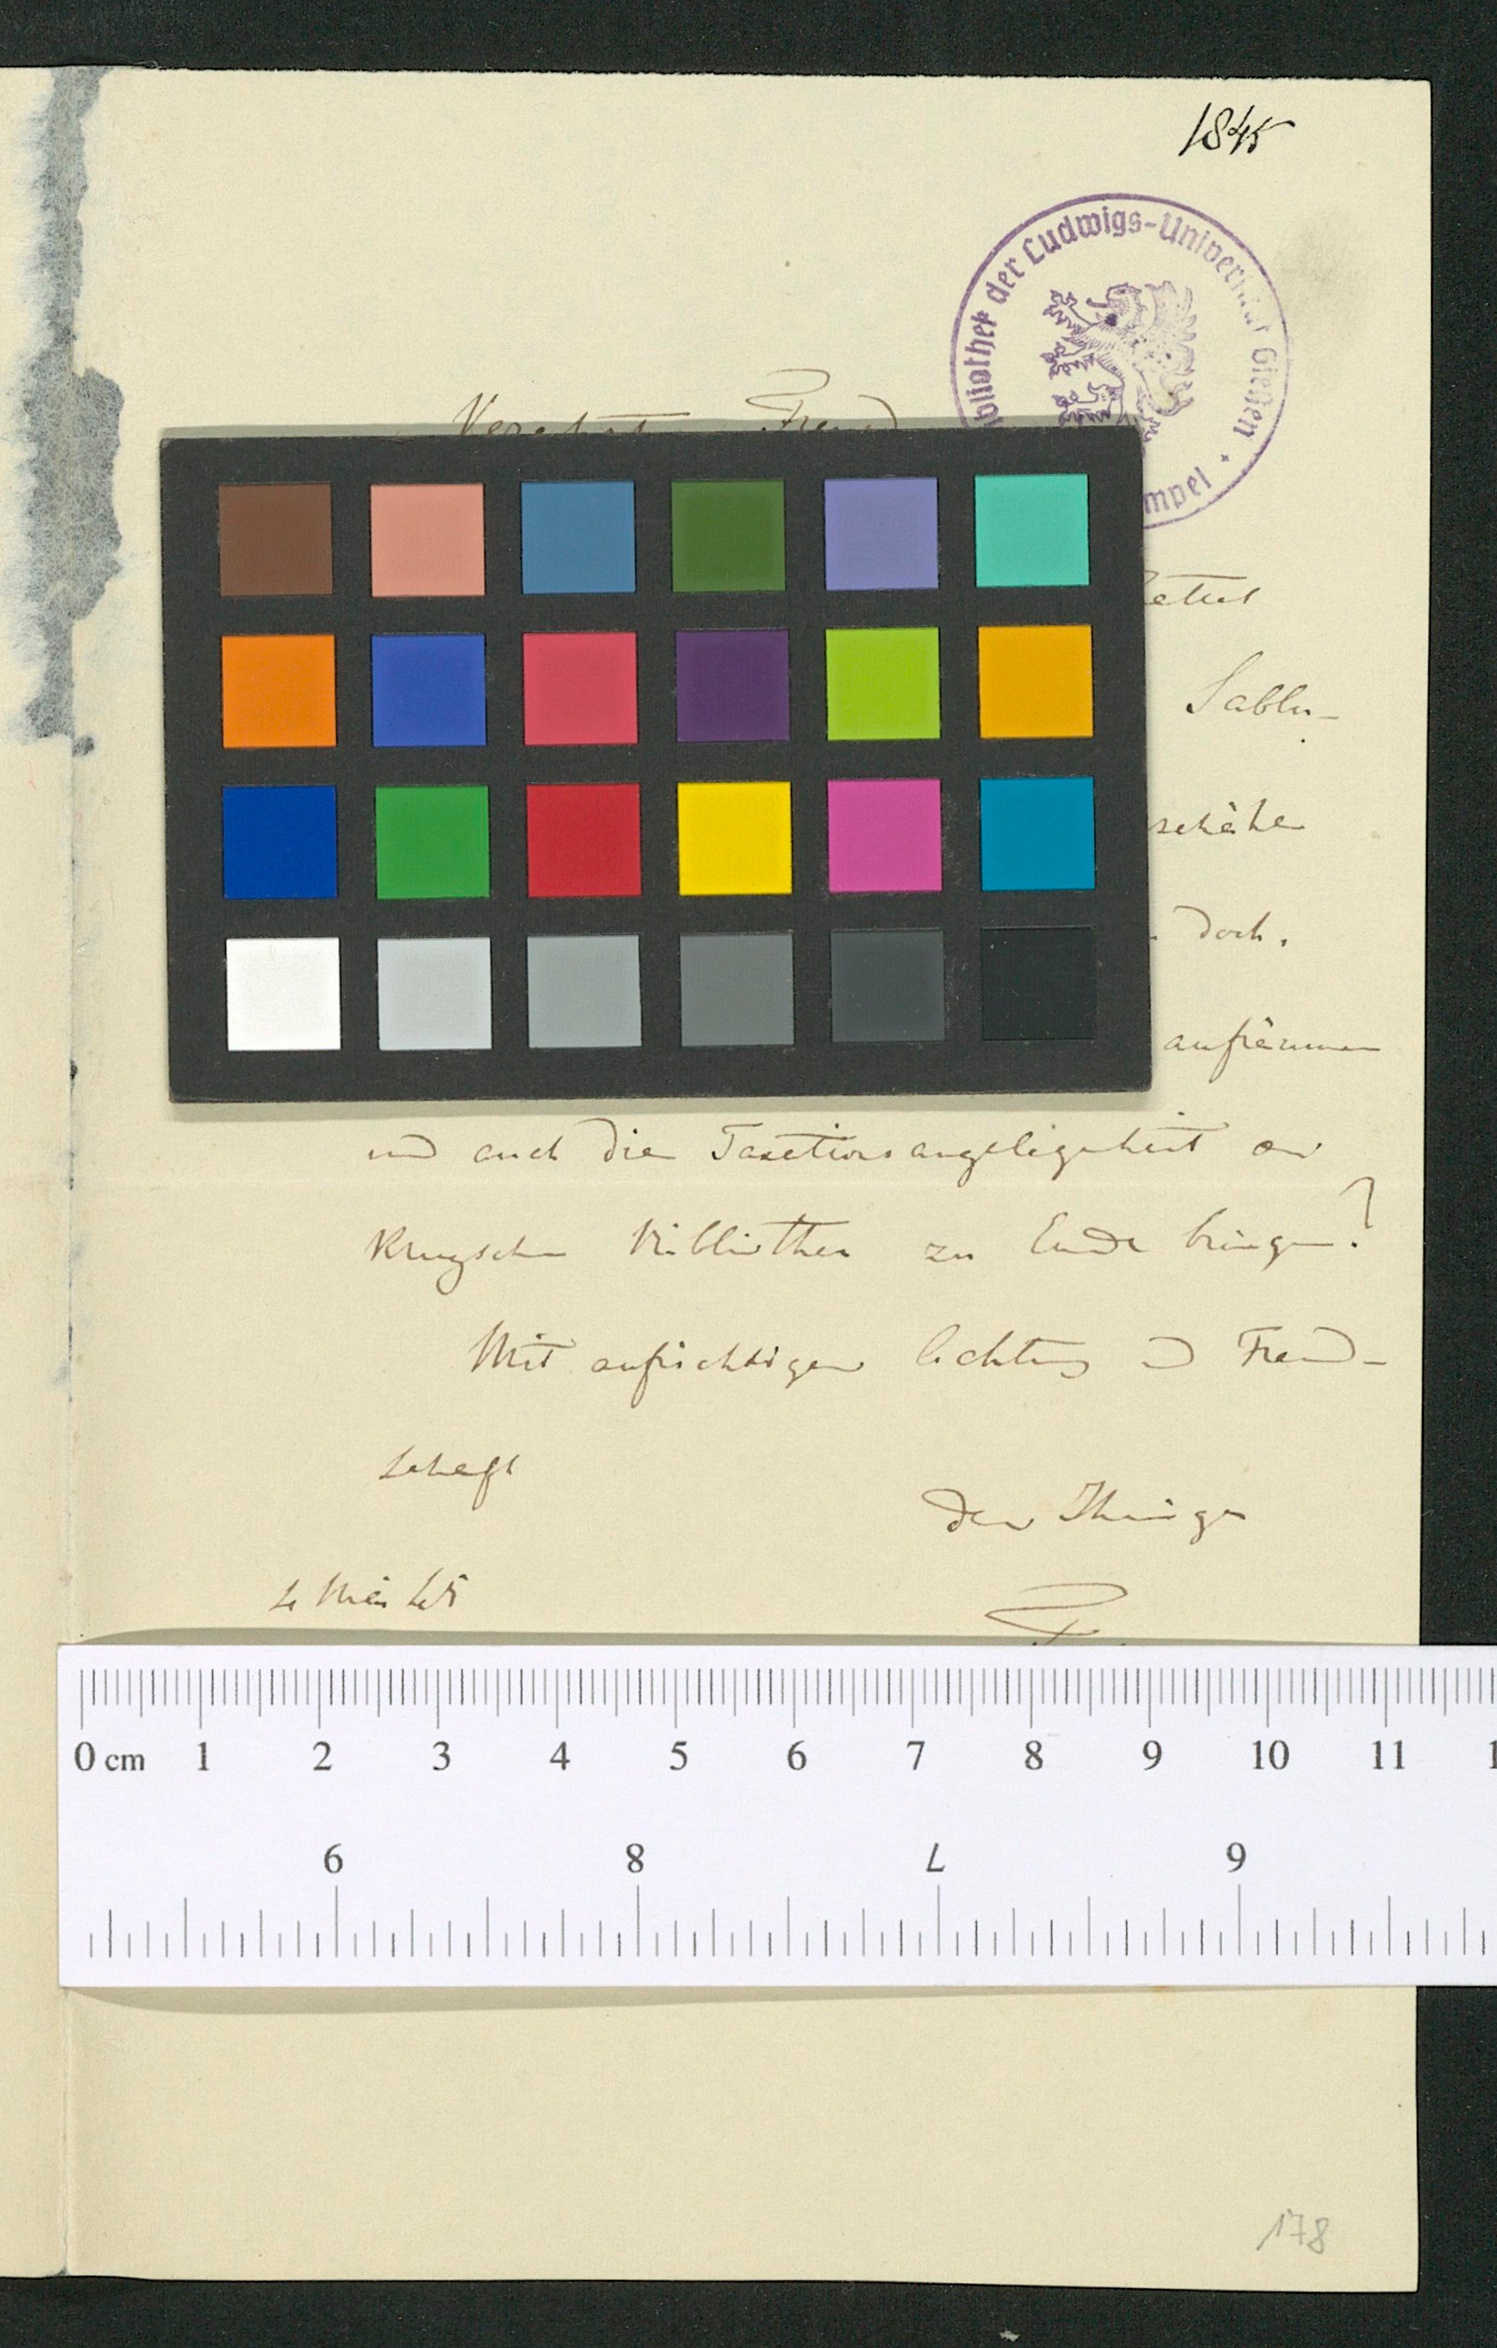 1845
Bibliothek der Ludwigs-Universität Gießen
Verehrter Freund
Sablu-
schähe
doch.
aufräumen
und auch die Taxationsangelegenheit der
Krugschen Bibliothek zu Ende bringen?
Mit aufrichtiger Achtung und Freund-
schaft
der Ihrige
0 cm 1 2 3 4 5 6 7 8 9 10 11 1
9 8 7 6
178